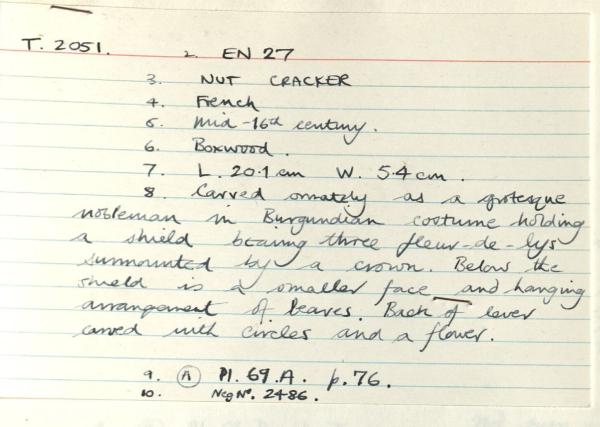 T. 2051. 2. EN 27
3. NUT CRACKER
4. French
5. Mid-16th century.
6. Boxwood.
7. L. 20.1 cm W. 5.4 cm.
8. Carved ornately as a grotesque
nobleman in Burgundian costume holding
a shield bearing three fleur-de-lys
surmounted by a crown. Below the
shield is a smaller face and hanging
arrangement of leaves. Back of lever
carved with circles and a flower.
9. (A) Pl. 69.A. p.76.
10. Neg No. 2486.